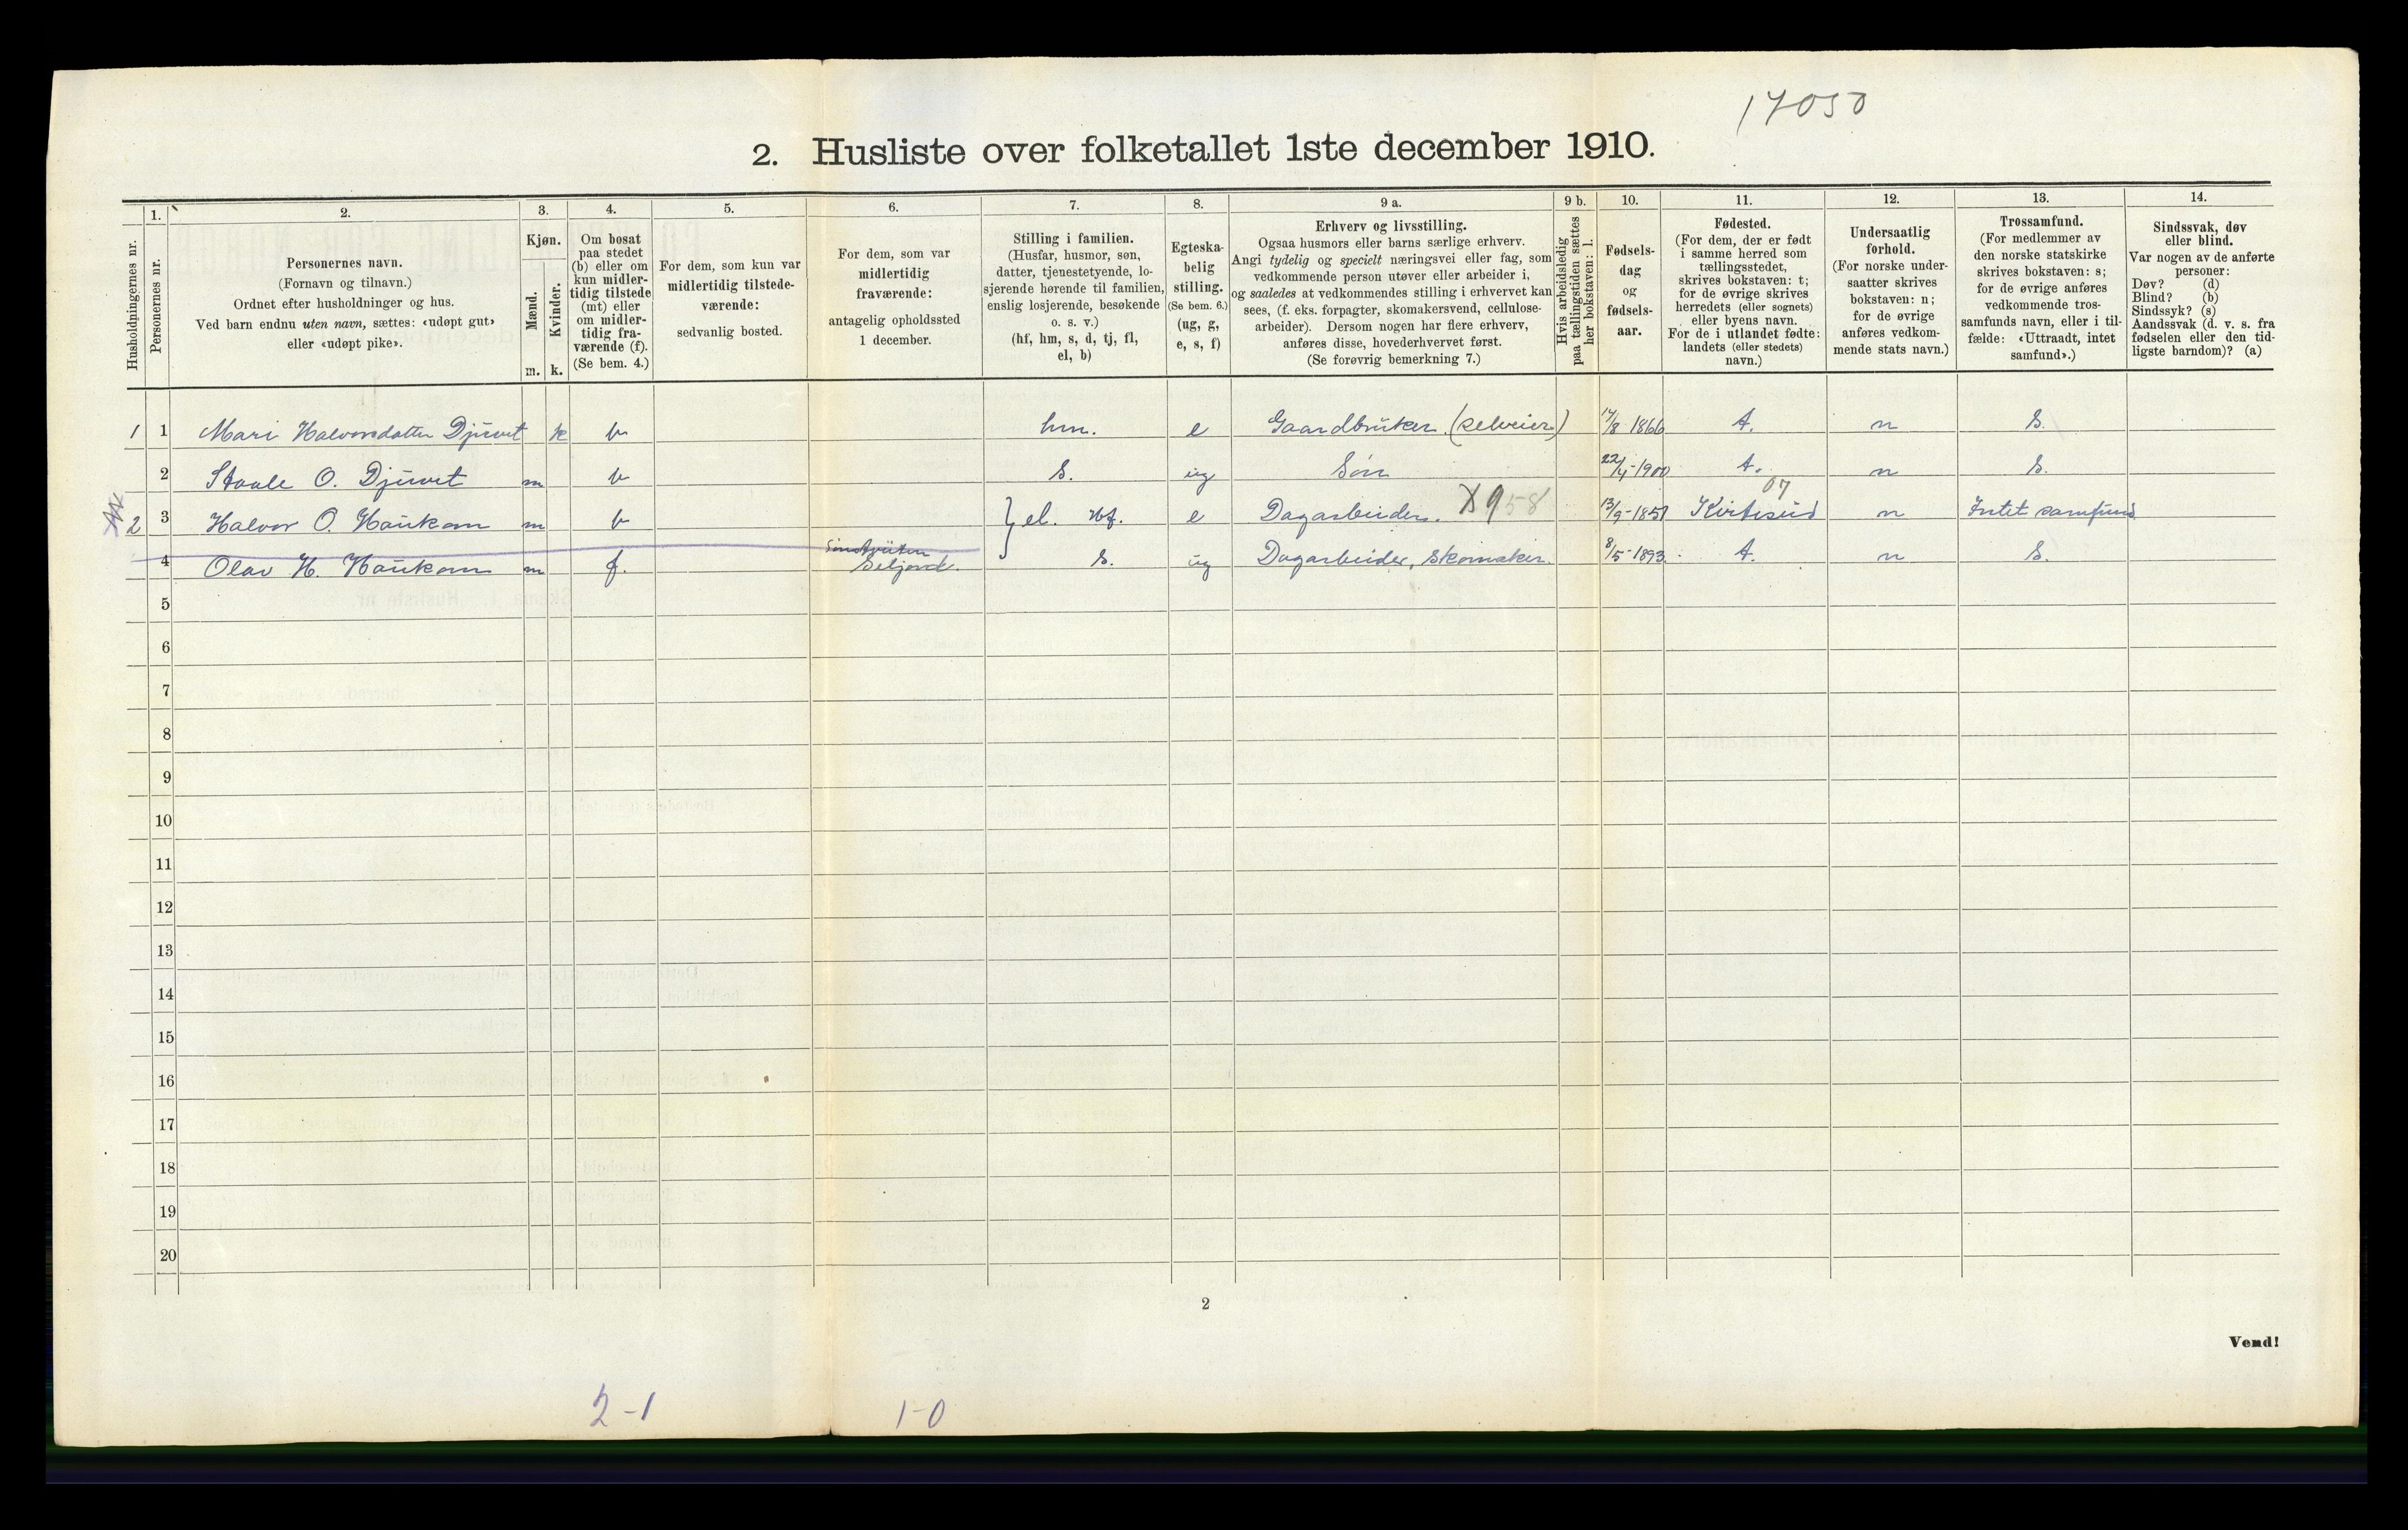 17050
2. Husliste over folketallet 1ste december 1910.
Husholdningernes nr.
1.
Personernes nr.
2.
Personernes navn.
(Fornavn og tilnavn.)
Ordnet efter husholdninger og hus.
Ved barn endnu uten navn, sættes: «udøpt gut»
eller «udøpt pike».
3.
Kjøn.
Mænd.
Kvinder.
m. k.
4.
Om bosat
paa stedet
(b) eller om
kun midler-
tidig tilstede
(mt) eller
om midler-
tidig fra-
værende (f).
(Se bem. 4.)
5.
For dem, som kun var
midlertidig tilstede-
værende:
sedvanlig bosted.
6.
For dem, som var
midlertidig
fraværende:
antagelig opholdssted
1 december.
7.
Stilling i familien.
(Husfar, husmor, søn,
datter, tjenestetyende, lo-
sjerende hørende til familien,
enslig losjerende, besøkende
o. s. v.)
(hf, hm, s, d, tj, fl,
el, b)
8.
Egteska-
belig
stilling.
(Se bem. 6.)
(ug, g,
e, s, f)
9 a.
Erhverv og livsstilling.
Ogsaa husmors eller barns særlige erhverv.
Angi tydelig og specielt næringsvei eller fag, som
vedkommende person utøver eller arbeider i,
og saaledes at vedkommendes stilling i erhvervet kan
sees, (f. eks. forpagter, skomakersvend, cellulose-
arbeider). Dersom nogen har flere erhverv,
anføres disse, hovederhvervet først.
(Se forøvrig bemerkning 7.)
9 b.
Hvis arbeidsledig
paa tællingstiden sættes
her bokstaven: l.
10.
Fødsels-
dag
og
fødsels-
aar.
11.
Fødested.
(For dem, der er født
i samme herred som
tællingsstedet,
skrives bokstaven: t;
for de øvrige skrives
herredets (eller sognets)
eller byens navn.
For de i utlandet fødte:
landets (eller stedets)
navn.)
12.
Undersaatlig
forhold.
(For norske under-
saatter skrives
bokstaven: n;
for de øvrige
anføres vedkom-
mende stats navn.)
13.
Trossamfund.
(For medlemmer av
den norske statskirke
skrives bokstaven: s;
for de øvrige anføres
vedkommende tros-
samfunds navn, eller i til-
fælde: «Uttraadt, intet
samfund».)
14.
Sindssvak, døv
eller blind.
Var nogen av de anførte
personer:
Døv? (d)
Blind? (b)
Sindssyk? (s)
Aandssvak (d. v. s. fra
fødselen eller den tid-
ligste barndom)? (a)
1 1 Mari Halvorsdatter Djuvet k b hm. e Gaardbruker (selveier) 17/8 1866 t. n s.
2 Staale O. Djuvet m b s. ug Søn 22/4-1900 t. n s.
2 3 Halvor O. Haukom m b el. hf. e Dagarbeider. X958 13/9-1851 Kviteseid 07 n Intet samfund
4 Olav H. Haukom m f. Seljord. s. ug Dagarbeider, skomaker. 8/5-1893. t. n s.
5
6
7
8
9
10
11
12
13
14
15
16
17
18
19
20
2
Vend!
2-1 1-0